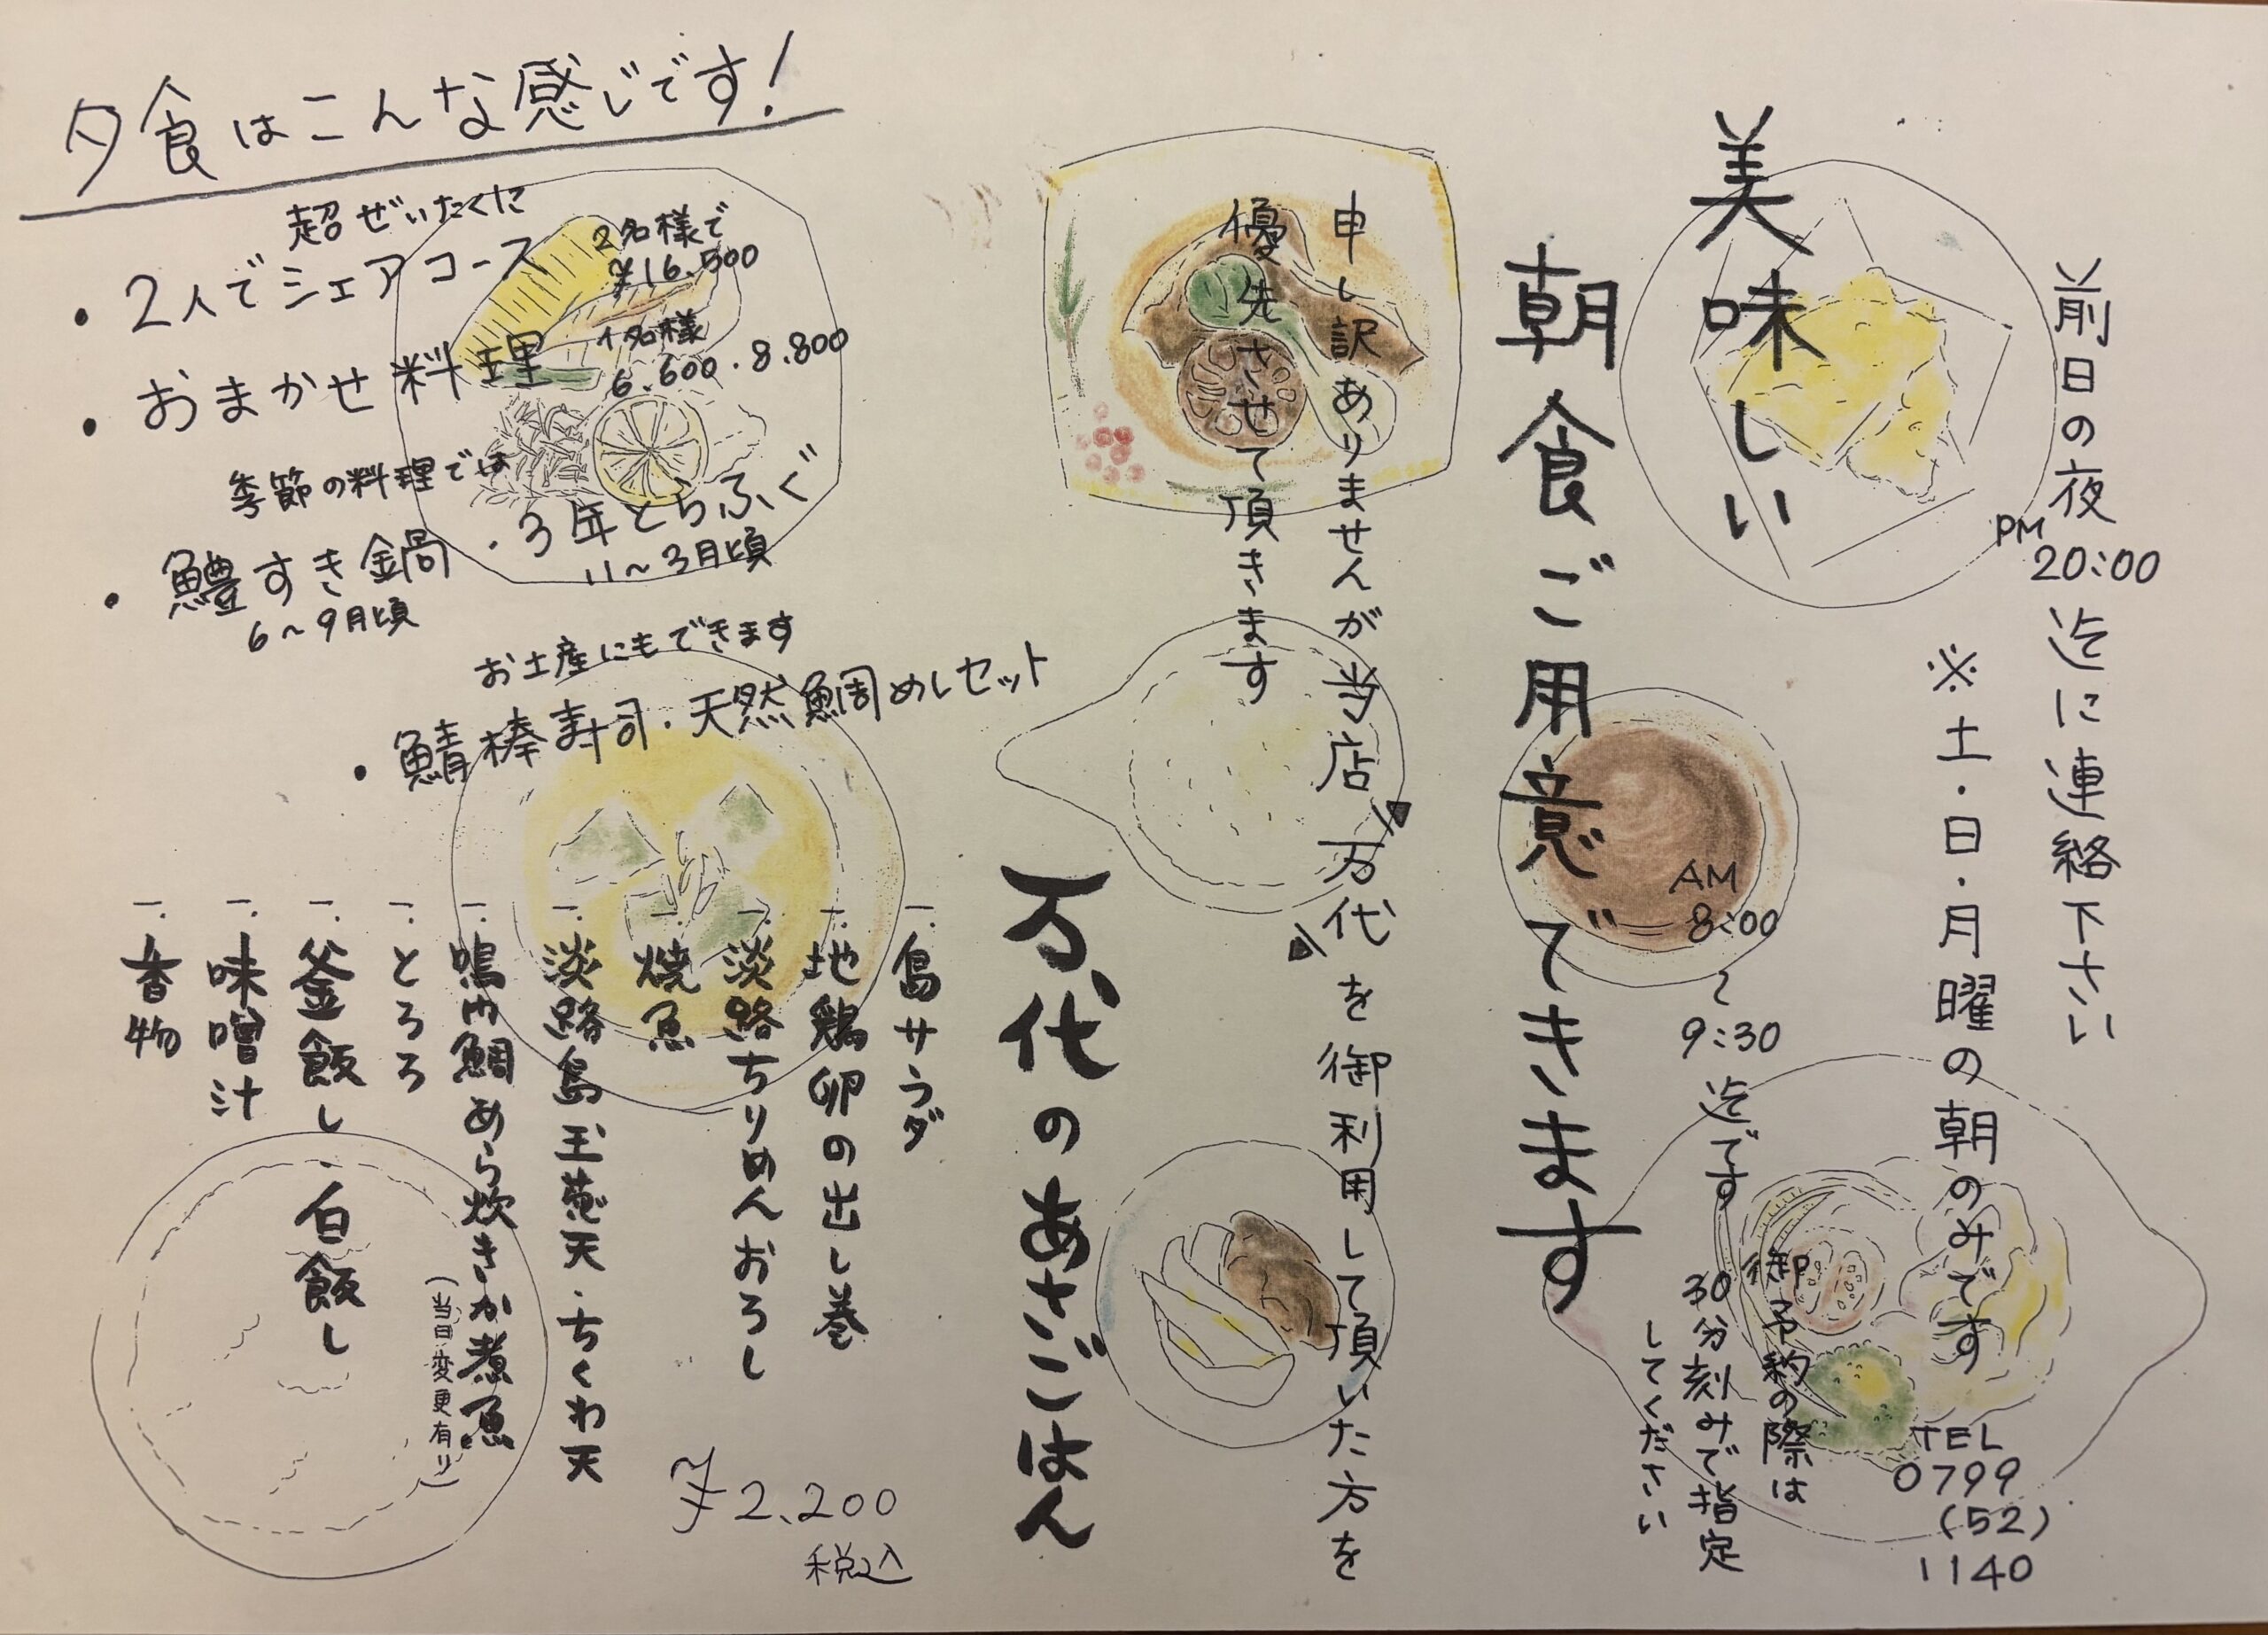 前日の夜
PM
20:00
迄に連絡下さい
※土・日・月曜の朝のみです
TEL
0799
(52)
1140
美味しい
朝食ご用意できます
AM
8:00
〜
9:30
迄です
御予約の際は
30分刻みで指定
してください
申し訳ありませんが当店万代を御利用して頂いた方を
優先させて頂きます
万代のあさごはん
一.島サラダ
一.地鶏卵の出し巻
一.淡路ちりめんおろし
一.焼魚
一.淡路島玉葱天・ちくわ天
一.鳴門鯛あら炊きか煮魚
(当日変更有り)
一.とろろ
一.釜飯し・白飯し
一.味噌汁
一.香物
¥2,200
税込
夕食はこんな感じです!
超ぜいたくに
・2人でシェアコース
2名様で
¥16.500
・おまかせ料理
1名様
6.600・8.800
季節の料理では
・鱧すき鍋・3年とらふぐ
6〜9月頃
11〜3月頃
お土産にもできます
・鯖棒寿司・天然鯛めしセット